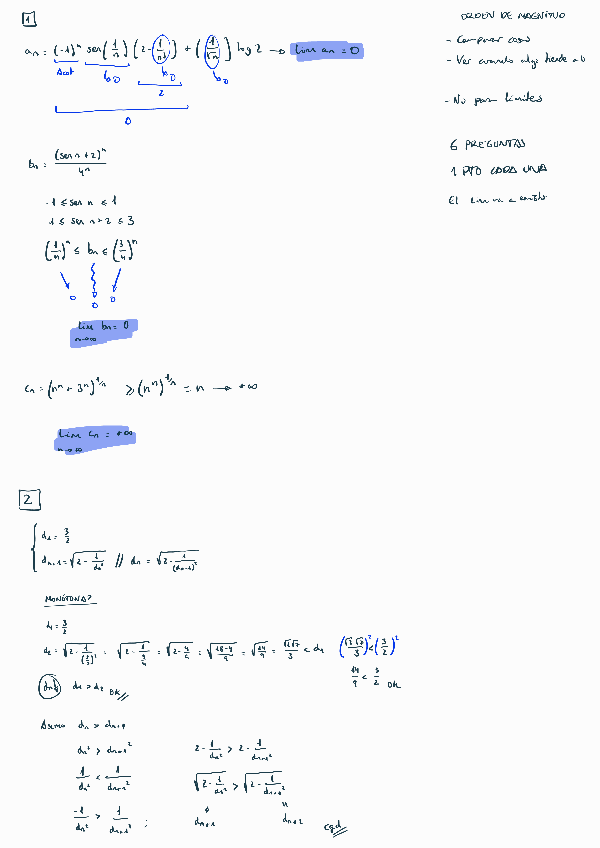 1
aₙ = (-1)ⁿ sen(1/n) (2 - 1/n⁴) + (1/√n) log 2 → lim aₙ = 0
Acot → 0 → 0 → 0
2
0
bₙ = (sen n + 2)ⁿ / 4ⁿ
-1 ≤ sen n ≤ 1
1 ≤ sen n + 2 ≤ 3
(1/4)ⁿ ≤ bₙ ≤ (3/4)ⁿ
0 0 0
lim bₙ = 0
n→∞
cₙ = (nⁿ + 3ⁿ)^(1/n) ≥ (nⁿ)^(1/n) = n → +∞
lim cₙ = +∞
n→∞
ORDEN DE MAGNITUD
- Comparar
- Ver cuando algo tiende a 0
- No
6 PREGUNTAS
1 PTO CADA UNA
El
2
d₁ = 3/2
dₙ₊₁ = √(2 - 1/dₙ²) // dₙ = √(2 - 1/(dₙ₋₁)²)
MONÓTONA?
d₁ = 3/2
d₂ = √(2 - 1/(3/2)²) = √(2 - 1/(9/4)) = √(2 - 4/9) = √((18-4)/9) = √(14/9) = √2√7/3 < d₁ (√2√7/3)² < (3/2)²
14/9 < 3/2 OK
d₁ > d₂ OK
Asumo dₙ > dₙ₊₁
dₙ² > dₙ₊₁² 2 - 1/dₙ² > 2 - 1/dₙ₊₁²
1/dₙ² < 1/dₙ₊₁² √(2 - 1/dₙ²) > √(2 - 1/dₙ₊₁²)
-1/dₙ² > 1/dₙ₊₁² ; dₙ₊₁ dₙ₊₂ cqd